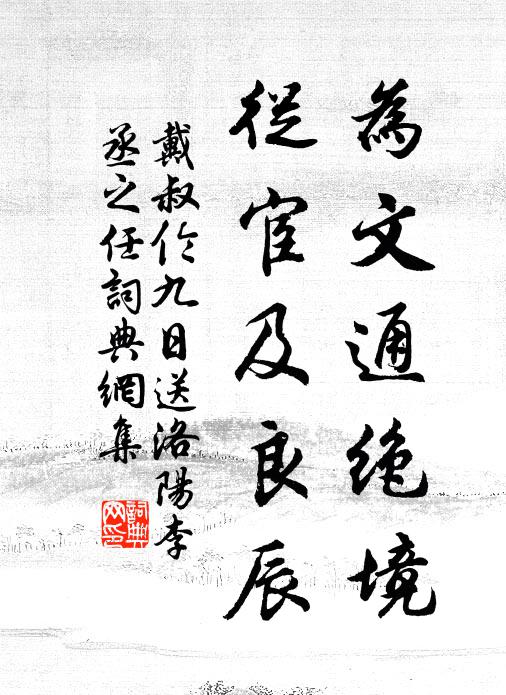 為文通絶境
從宦及良辰
戴叔伦九日送洛陽李
丞之任詞典網集
詞典
网印